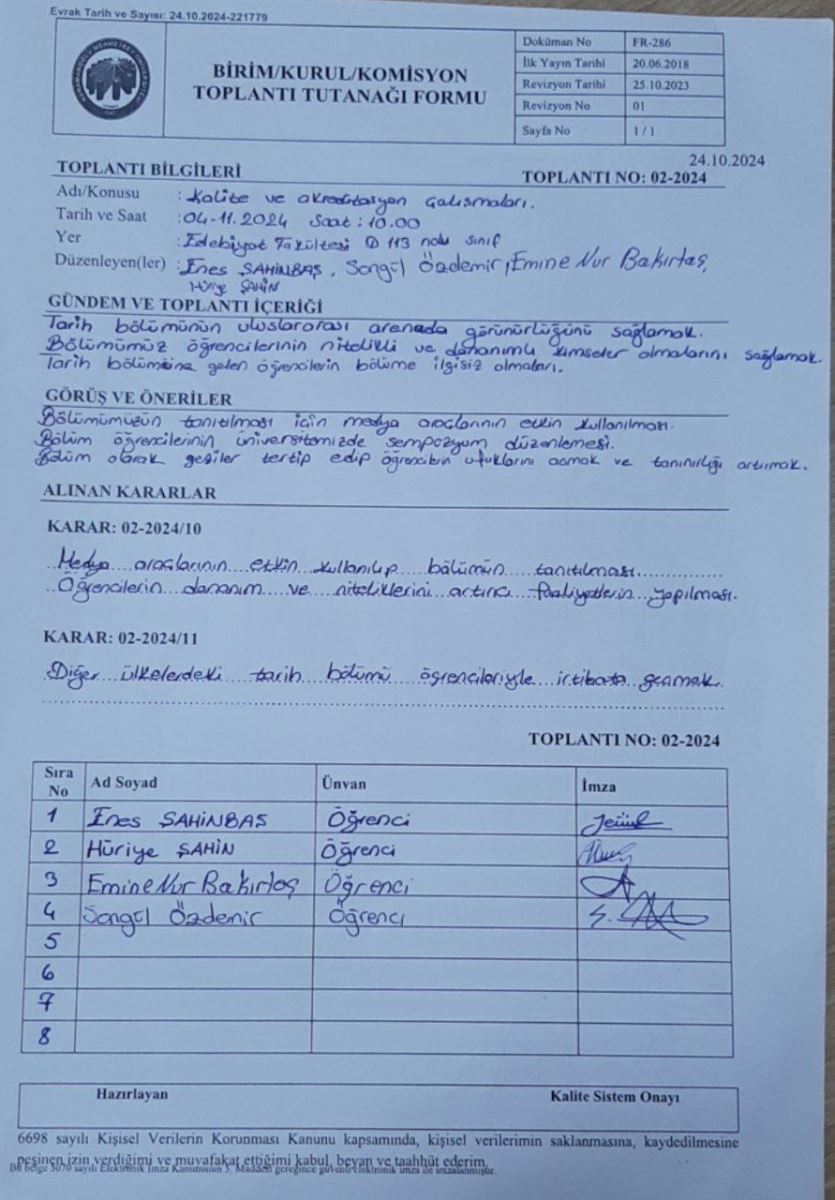 Evrak Tarih ve Sayısı: 24.10.2024-221779
BİRİM/KURUL/KOMİSYON
TOPLANTI TUTANAĞI FORMU
Doküman No FR-286
İlk Yayın Tarihi 20.06.2018
Revizyon Tarihi 25.10.2023
Revizyon No 01
Sayfa No 1 / 1
24.10.2024
TOPLANTI BİLGİLERİ TOPLANTI NO: 02-2024
Adı/Konusu : Kalite ve akreditasyon Çalışmaları.
Tarih ve Saat : 04-11.2024 Saat: 10.00
Yer : Edebiyat Fakültesi D 113 nolu sınıf
Düzenleyen(ler) : Enes ŞAHİNBAŞ, Songül Özdemir, Emine Nur Bakırtaş,
ŞAHİN
GÜNDEM VE TOPLANTI İÇERİĞİ
Tarih bölümünün uluslararası arenada görünürlüğünü sağlamak.
Bölümümüz öğrencilerinin nitelikli ve donanımlı kimseler olmalarını sağlamak.
Tarih bölümüne gelen öğrencilerin bölüme ilgisiz olmaları.
GÖRÜŞ VE ÖNERİLER
Bölümümüzün tanıtılması için medya araçlarının etkin kullanılması.
Bölüm öğrencilerinin üniversitemizde sempozyum düzenlemesi.
Bölüm olarak geziler tertip edip ufuklarını açmak ve tanınırlığı artırmak.
ALINAN KARARLAR
KARAR: 02-2024/10
Medya araçlarının etkin kullanılıp bölümün tanıtılması
Öğrencilerin donanım ve niteliklerini artırıcı faaliyetlerin yapılması.
KARAR: 02-2024/11
Diğer ülkelerdeki tarih bölümü öğrencileriyle irtibata geçmek.
TOPLANTI NO: 02-2024
Sıra No Ad Soyad Ünvan İmza
1 Enes ŞAHİNBAŞ Öğrenci
2 Hüriye ŞAHİN Öğrenci
3 Emine Nur Bakırtaş Öğrenci
4 Songül Özdemir Öğrenci
5
6
7
8
Hazırlayan Kalite Sistem Onayı
6698 sayılı Kişisel Verilerin Korunması Kanunu kapsamında, kişisel verilerimin saklanmasına, kaydedilmesine
peşinen izin verdiğimi ve muvafakat ettiğimi kabul, beyan ve taahhüt ederim.
Bu belge 5070 sayılı Elektronik İmza Kanununun 5. Maddesi gereğince güvenli elektronik imza ile imzalanmıştır.